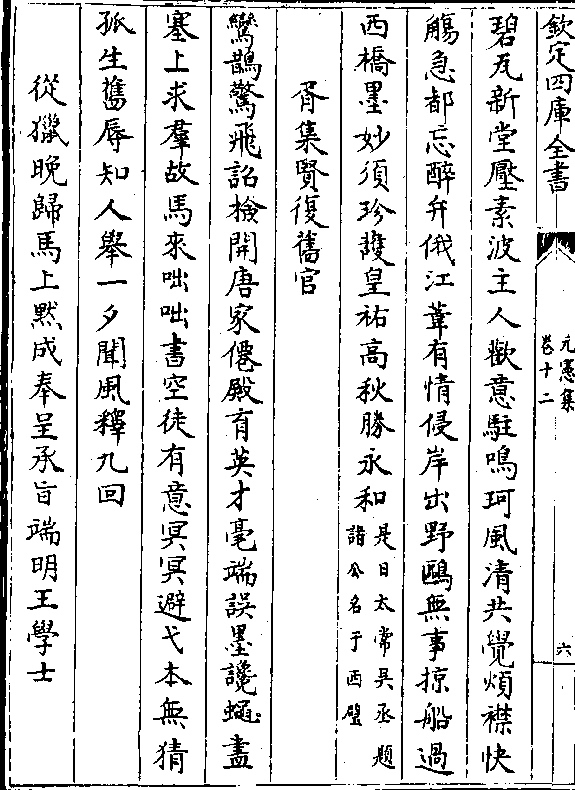 欽定四庫全書
元憲集
卷十二
六
碧瓦新堂壓素波主人歡意駐鳴珂風清共覺煩襟快
觴急都忘醉弁俄江葦有情侵岸出野鷗無事掠船過
西橋墨妙須珍䕶皇祐高秋勝永和是日太常吳丞題
諸公名于西壁
胥集賢復舊官
鸞鵲驚飛詔檢開唐家僊殿育英才毫端誤墨讒蠅盡
塞上求羣故馬來咄咄書空徒有意冥冥避弋本無猜
孤生舊辱知人舉一夕聞風釋九回
從獵晚歸馬上黙成奉呈承旨端明王學士